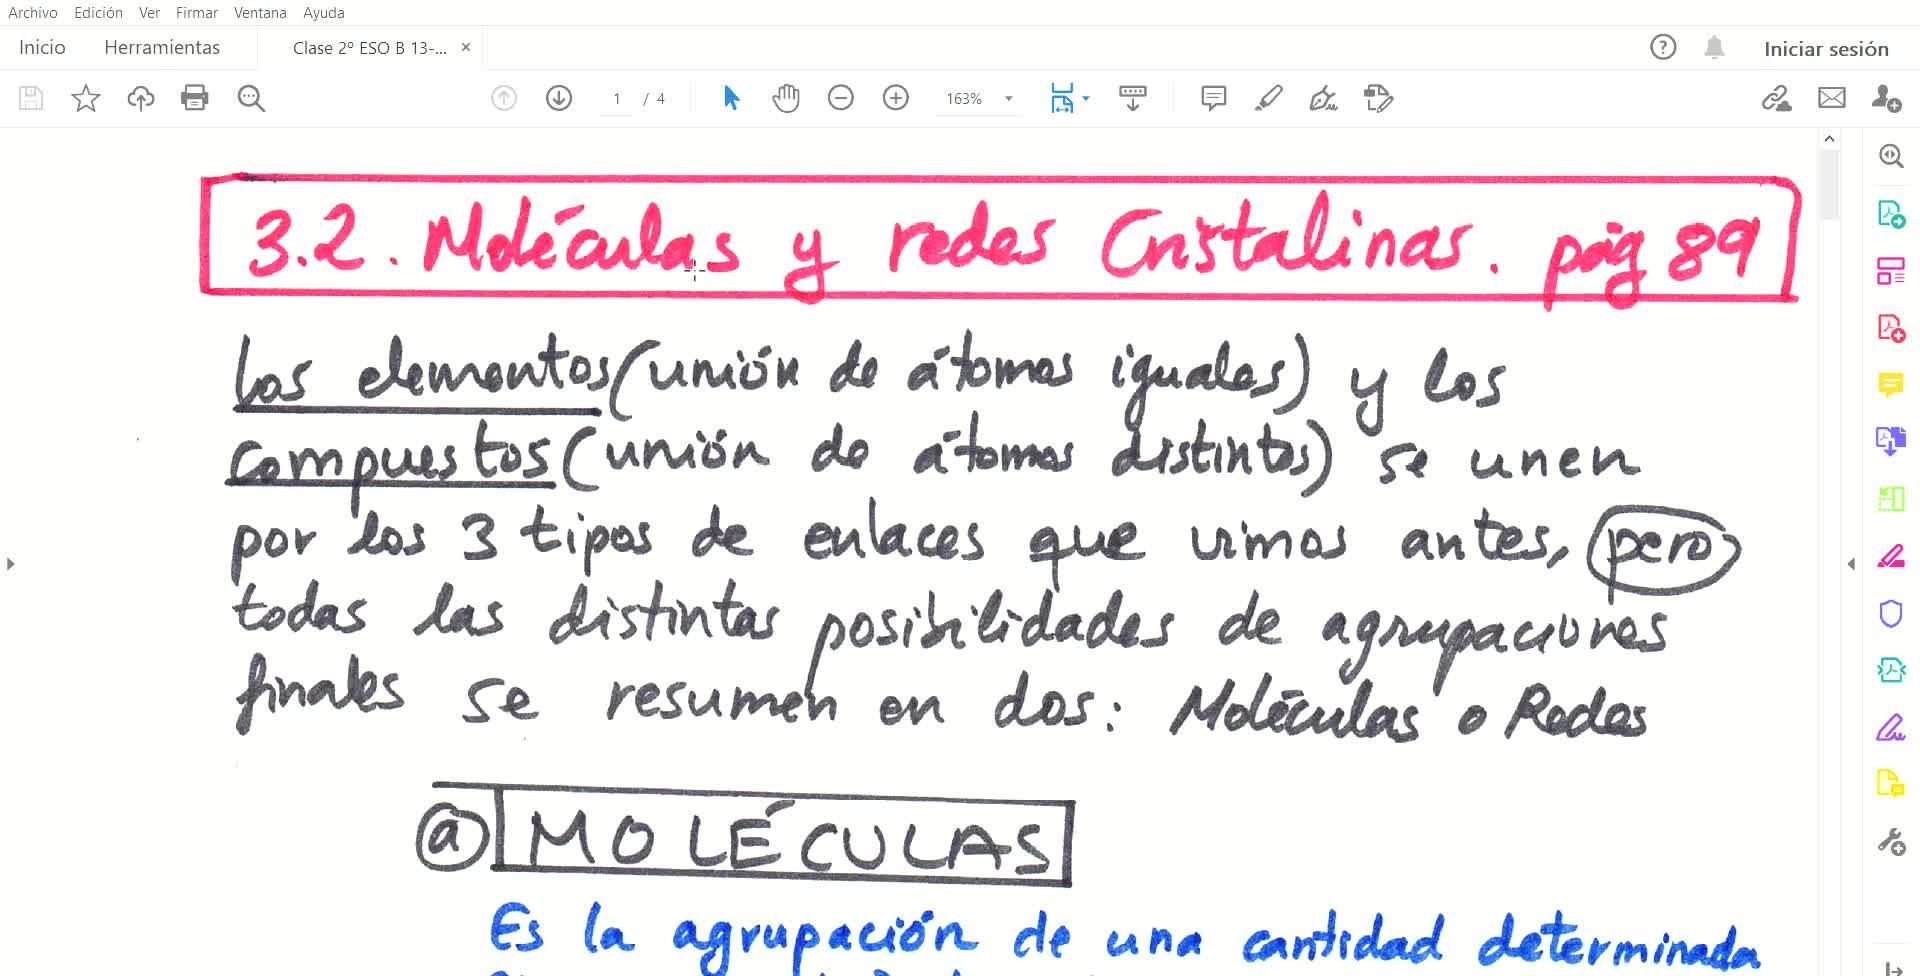 Archivo Edición Ver Firmar Ventana Ayuda
Inicio Herramientas Clase 2º ESO B 13-... × Iniciar sesión
1 / 4 163%
3.2. Moléculas y redes Cristalinas. pág 89
Los elementos (unión de átomos iguales) y los
compuestos (unión de átomos distintos) se unen
por los 3 tipos de enlaces que vimos antes, pero
todas las distintas posibilidades de agrupaciones
finales se resumen en dos: Moléculas o Redes
a MOLÉCULAS
Es la agrupación de una cantidad determinada